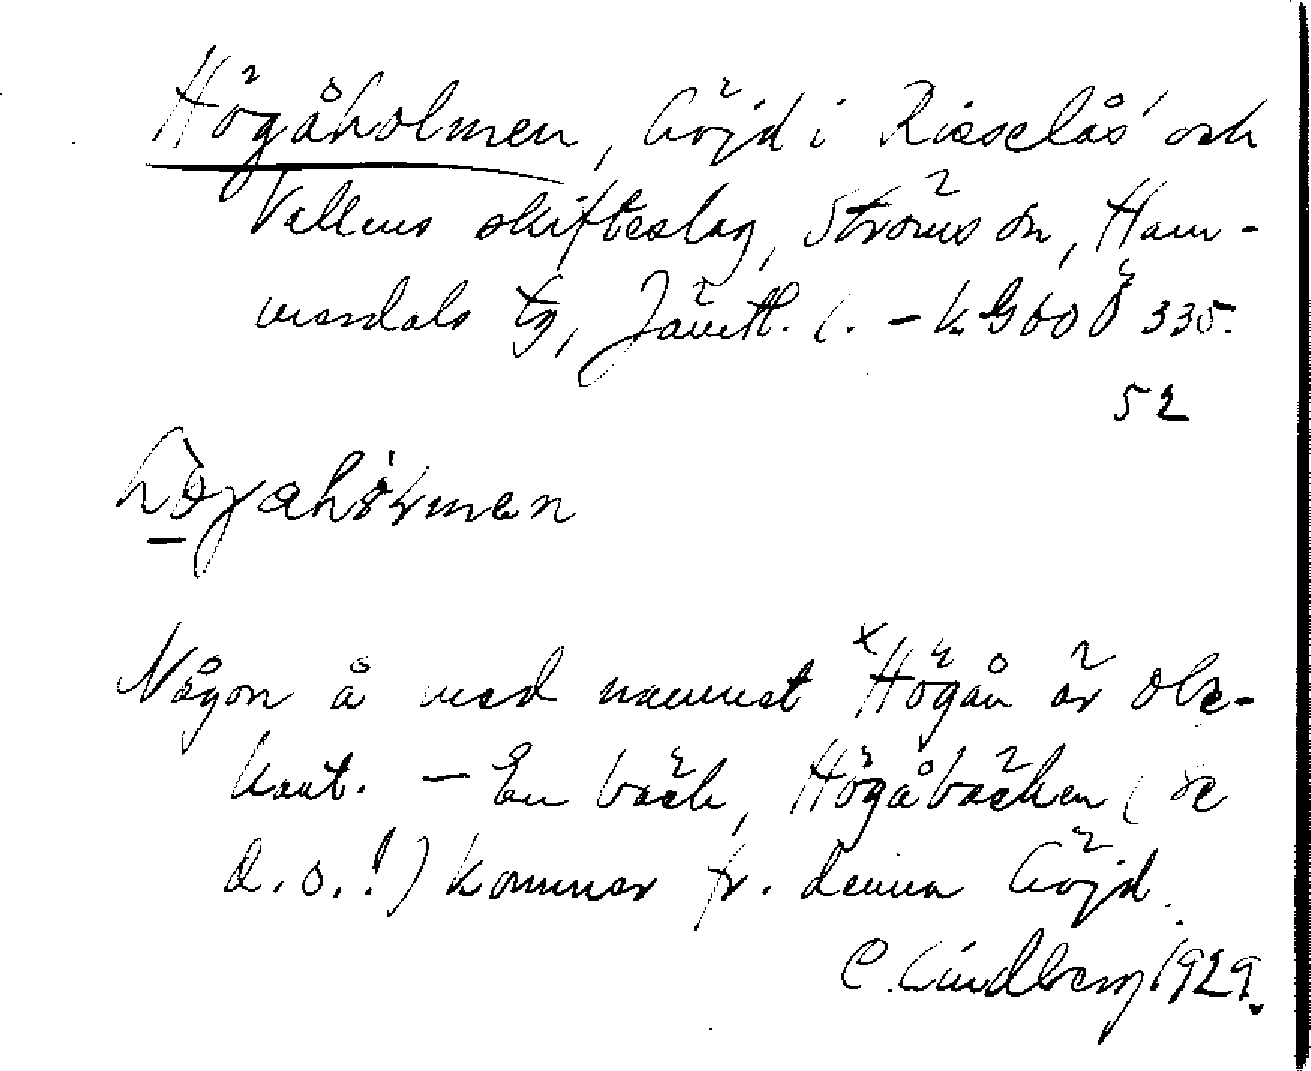 Högåholmen, höjd i Risselås och
Vallens skifteslag, Ströms sn, Ham-
merdals tg, Jämtl. l. - k G60Ö 335.
52
Någon å med namnet ˣHögån är obe-
kant. - En bäck, Högåbäcken (se
d.o.!) kommer fr. denna höjd.
C. Lindberg 1929.